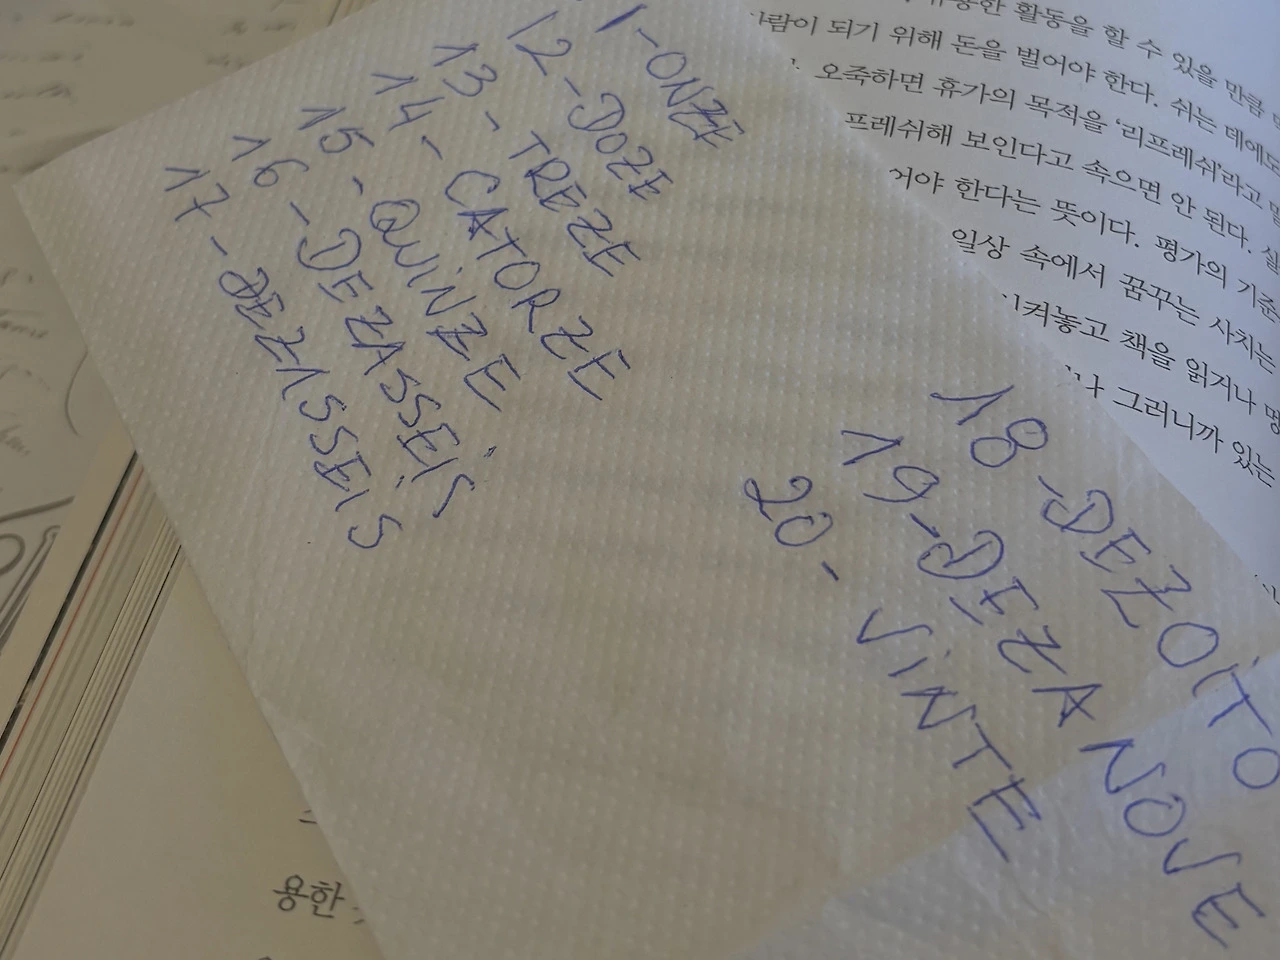 11-ONZE
12-DOZE
13-TREZE
14-CATORZE
15-QUiNZE
16-DEZASSEiS
17-DEZASSEiS
18-DEZOiTO
19-DEZANOVE
20-ViNTE
활동을 할 수 있을 만큼
되기 위해 돈을 벌어야 한다. 쉬는 데에도
오죽하면 휴가의 목적을 '리프레쉬'라고
프레쉬해 보인다고 속으면 안 된다.
한다는 뜻이다. 평가의 기준
일상 속에서 꿈꾸는 사치는
책을 읽거나
그러니까 있는
용한